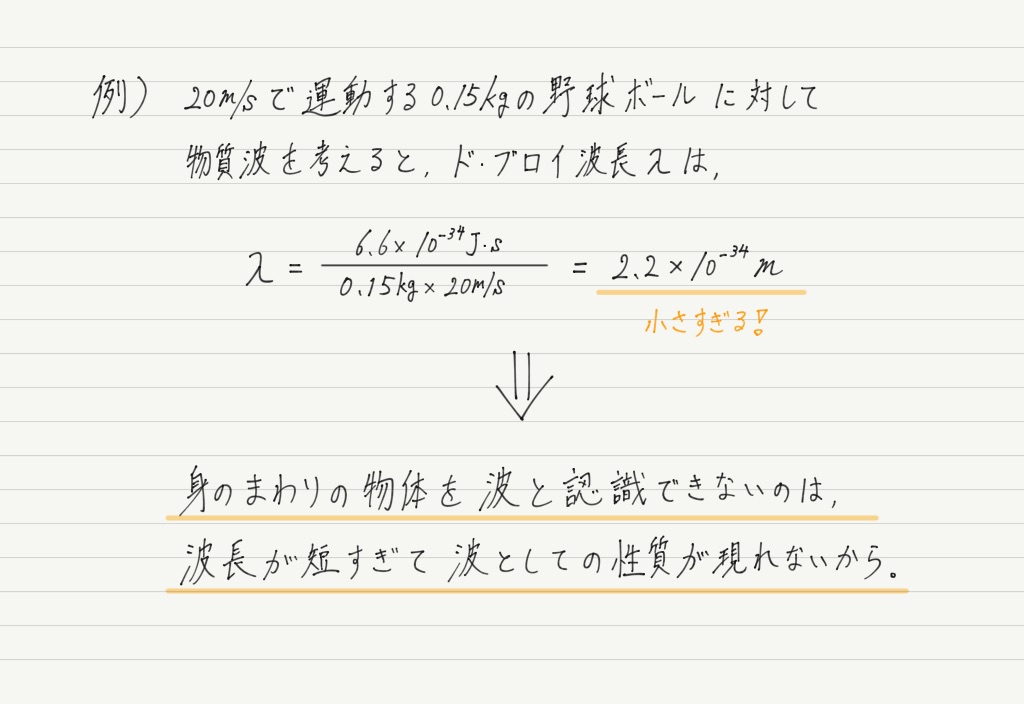 例) 20m/sで運動する0.15kgの野球ボールに対して
物質波を考えると, ド・ブロイ波長λは,
λ = 6.6×10⁻³⁴J・s / 0.15kg×20m/s = 2.2×10⁻³⁴m
小さすぎる!
⇓
身のまわりの物体を波と認識できないのは,
波長が短すぎて波としての性質が現れないから。